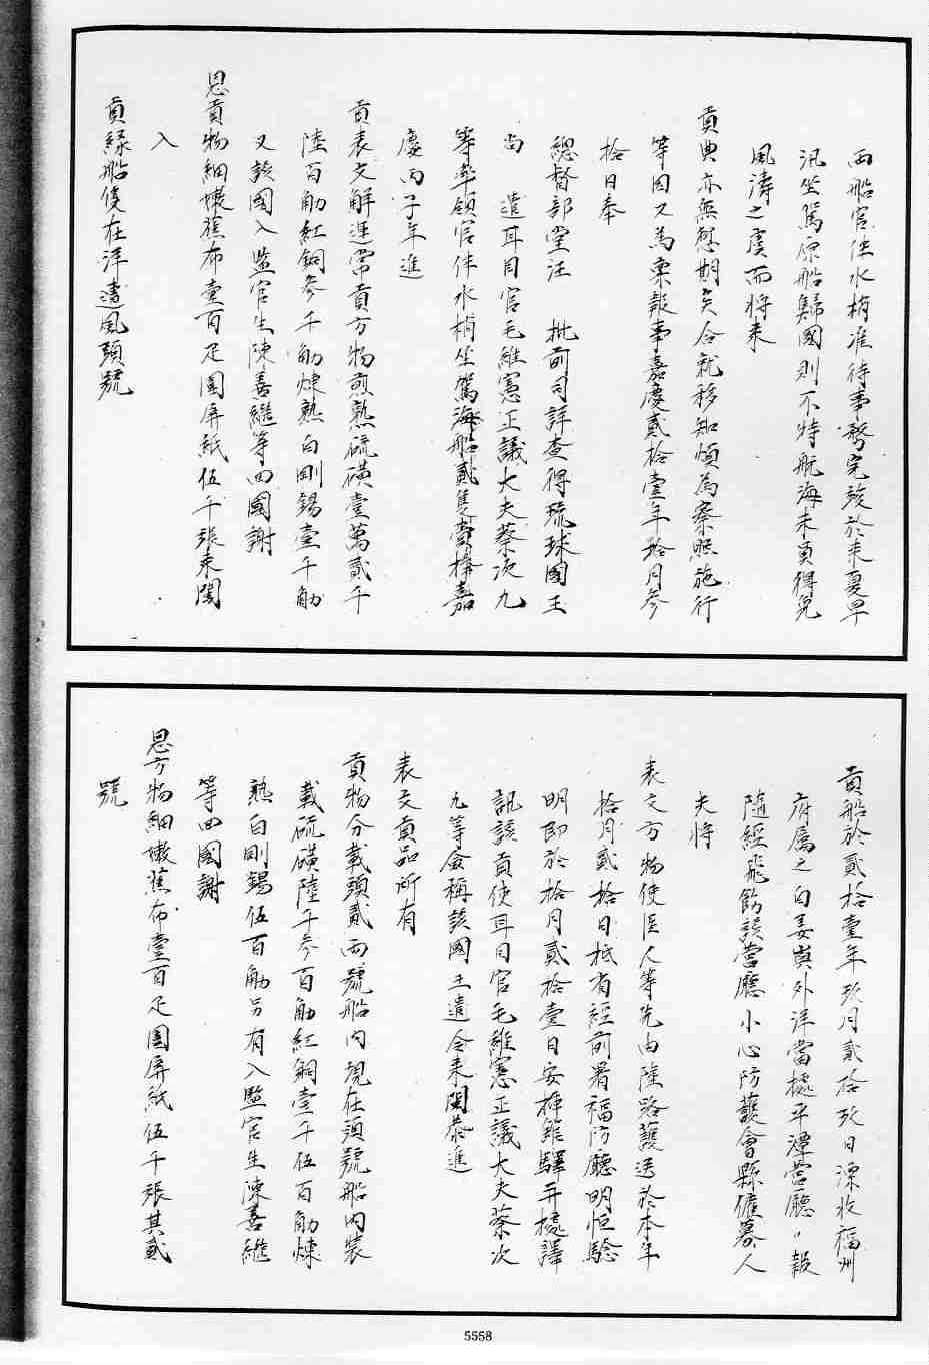 兩船官伴水梢准待事務完竣於來夏早
汛坐駕原船歸國則不特航海末員得免
風濤之虞而將來
貢典亦無愆期矣合就移知煩為察照施行
等因又為稟報事嘉慶貳拾壹年拾月參
拾日奉
總督部堂汪 批前司詳查得琉球國王
尚 遣耳目官毛維憲正議大夫蔡次九
等率領官伴水梢坐駕海船貳隻齎捧嘉
慶丙子年進
貢表文解運常貢方物煎熟硫磺壹萬貳千
陸百觔紅銅參千觔煉熟白剛錫壹千觔
又該國入監官生陳善繼等回國謝
恩貢物細嫩蕉布壹百疋圍屏紙伍千張來閩
入
貢緣船隻在洋遭風頭號
貢船於貳拾壹年玖月貳拾玖日漂收福州
府屬之白姜嶼外洋當據平潭營廳〻報
隨經飛飭該營廳小心防護會縣僱募人
夫將
表文方物使臣人等先由陸路護送於本年
拾月貳拾日抵省經前署福防廳明恒驗
明即於拾月貳拾壹日安插館驛并據譯
訊該貢使耳目官毛維憲正議大夫蔡次
九等僉稱該國王遣令來閩恭進
表文貢品所有
貢物分載頭貳兩號船內現在頭號船內裝
載硫磺陸千參百觔紅銅壹千伍百觔煉
熟白剛錫伍百觔另有入監官生陳善繼
等回國謝
恩方物細嫩蕉布壹百疋圍屏紙伍千張其貳
號
5558